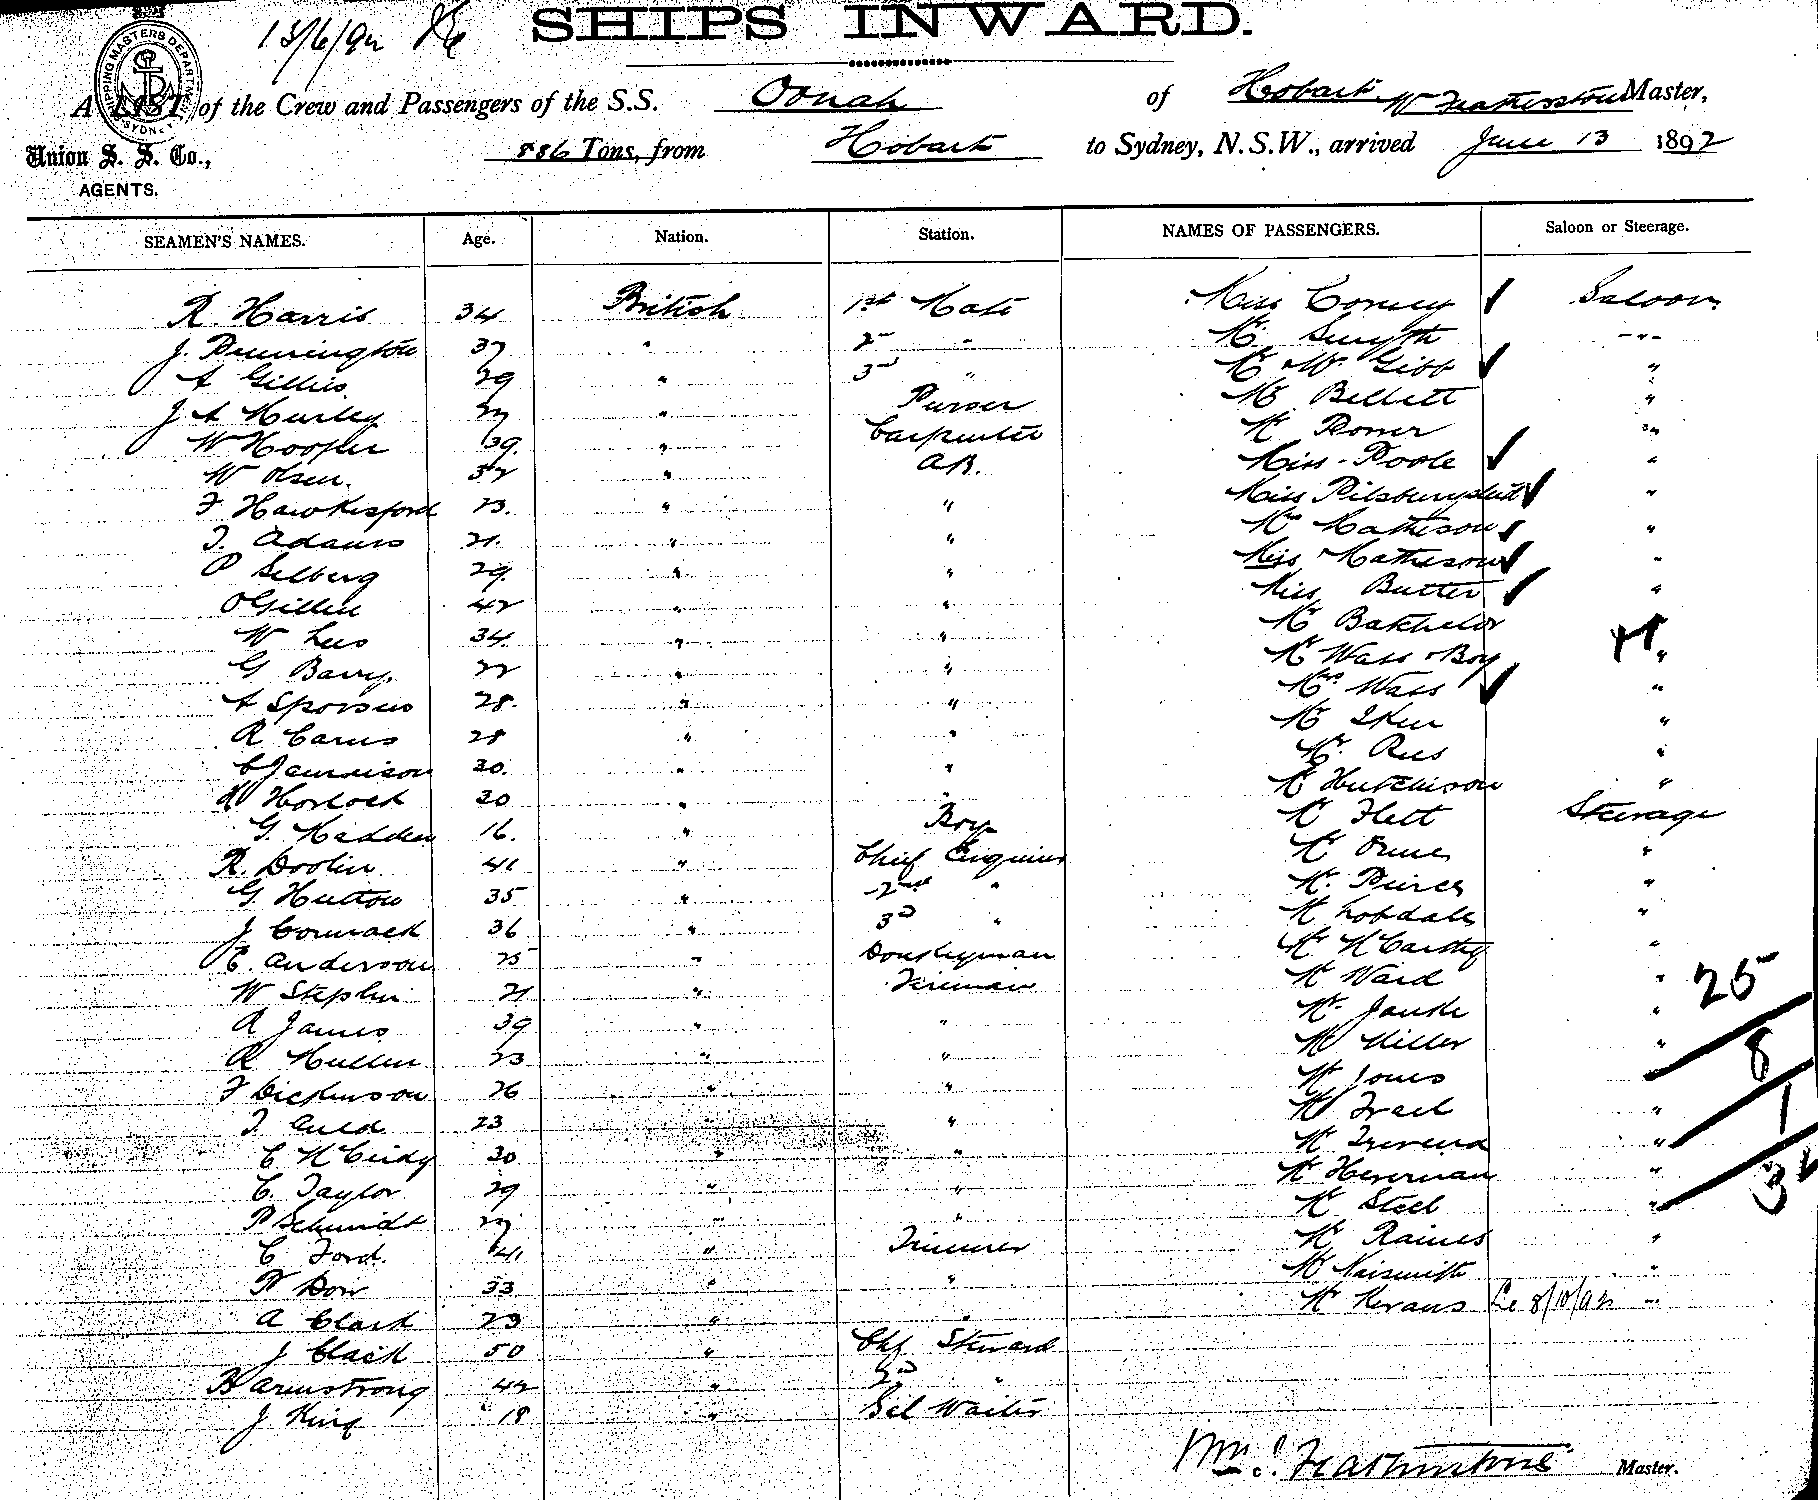 SHIPS INWARD.
13/6/92
SHIPPING MASTERS DEPARTMENT SYDNEY
A LIST of the Crew and Passengers of the S.S. Oonah of Hobart W Featherstone Master,
Union S. S. Co., AGENTS.
886 Tons, from Hobart to Sydney, N.S.W., arrived June 13 1892
SEAMEN'S NAMES. Age. Nation. Station. NAMES OF PASSENGERS. Saloon or Steerage.
R. Harris 34 British 1st Mate Miss Corney Saloon
J. Pennington 37 " 2nd " Mr. Smyth "
A Gillies 29 " 3rd " Mr & Mrs Gibb "
J A Hurley 27 " Purser Mr Bellett "
W Hooper 39. " Carpenter Mr "
W Olsen. 32 " A.B. Miss Poole "
F Hawkesford 23. " " Miss "
T. Adams 21. " " Mrs Matheson "
P Selberg 29. " " Miss Matheson "
O Gillen 42 " " Miss Butter "
W Lee 34. " " Mr Batchelor "
G Barry. 22 " " Mr Wass & Boy "
A 28. " " Mrs Wass "
R Carus 28 " " Mr "
C Jamieson 30. " " Mr. Rees "
H Horlock 30 " " Mr Hutchison "
G. Madden 16. " Boy Mr Flett Steerage
R. Doolin 41 " Chief Engineer Mr "
G Hutton 35 " 2nd " Mr. Peirce "
J Cormack 36 " 3rd " Mr Lobdale "
C. Anderson 25 " Donkeyman Mr McCarthy "
W Stephen 21 " Fireman Mr Ward "
R James 39 " " Mr. "
R Mullen 23 " " Mr Miller "
F Dickinson 26 " " Mr Jones "
T. Auld 23 " " Mr Trail "
C McCurdy 30 " " Mr "
C. Taylor 29 " " Mr Heverman "
P Schmidt 27 " " Mr Steel "
C Ford. 41 " Trimmer Mr Raines "
W Dow 33 " " Mr Naismith "
A Clark 23 " " Mr Kevans 8/10/92 "
J Clark 50 " Chf Steward
H Armstrong 42 " 2nd "
J King 18 " Sal Waiter
25
8
1
34
Wm. Featherstone Master.